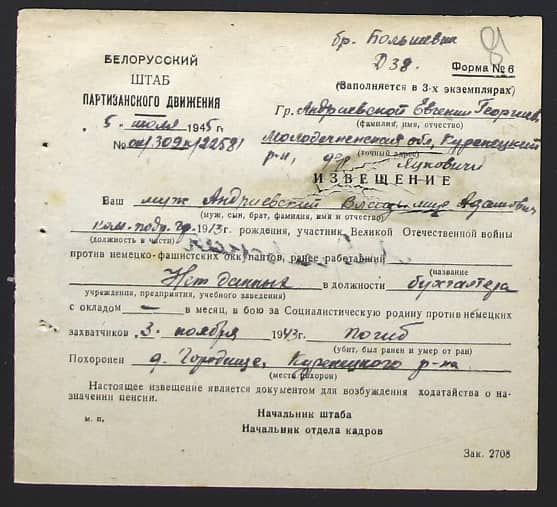 бр. Большевик
81
Д 38.
БЕЛОРУССКИЙ
ШТАБ
ПАРТИЗАНСКОГО ДВИЖЕНИЯ
5. июля 1945 г.
Форма № 6
(Заполняется в 3-х экземплярах)
Гр. Андриевской Евгении Георгиев.
(фамилия, имя, отчество)
Молодечненская обл, Куренецкий
р-н, дер
(точный адрес)
ИЗВЕЩЕНИЕ
Ваш муж Андриевский Владимир Адамович
(муж, сын, брат, фамилия, имя и отчество)
ком. подр. гр. 1913 г. рождения, участник Великой Отечественной войны
(должность в части)
против немецко-фашистских оккупантов, ранее работавший
(название
Нет данных в должности бухгалтера
учреждения, предприятия, учебного заведения)
с окладом — в месяц, в бою за Социалистическую родину против немецких
захватчиков 3. ноября 1943 г. погиб
(убит, был ранен и умер от ран)
Похоронен д. Городище, Куренецкого р-на
(место похорон)
Настоящее извещение является документом для возбуждения ходатайства о на-
значении пенсии.
Начальник штаба
м. п.
Начальник отдела кадров
Зак. 2708